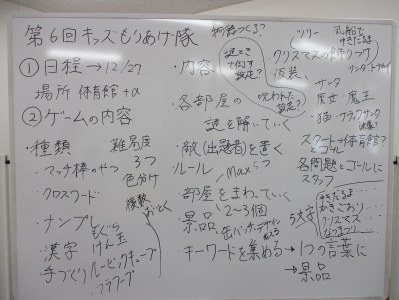 第6回キッズもりあげ隊
①日程→12/27
場所 体育館+α
②ゲームの内容
・種類
マッチ棒のやつ
クロスワード
ナンプレ
漢字
手づくり
難易度
3つ
色分け
複数
おいとく
もぐら
けん玉
ルービックキューブ
フラフープ
物語つくる?
謎とき
で倒す
設定?
呪われた
設定?
・内容
各部屋の
謎を解いていく
・敵(出題者)を置く
・ルール
Max5つ
部屋をまわっていく
・景品
2~3個
缶バッチ・デザイン
キーワードを集める→1つの言葉に
→景品
ツリー
クリスマスの飾りつけ
仮装
サンタ
魔女・魔王
スタートは体育館?
ゴール
各問題とゴールに
スタッフ
5文字
ゆきだるま…
かきごおり…
クリスマス…
なつまつり…